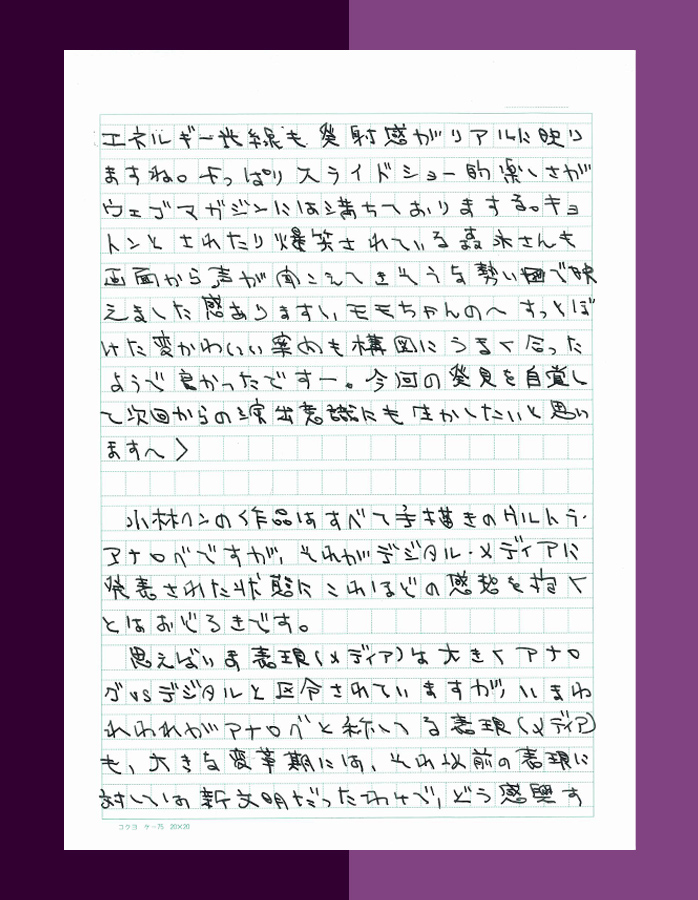 エネルギー光線も発射感がリアルに映り
ますね。やっぱりスライドショー的楽しさが
ウェブマガジンには満ちております。キョ
トンとされたり爆笑されている森永さんも
画面から声が聞こえてきそうな勢いで映
えました感ありますし、モモちゃんのへすっとぼ
けた変かわいい案内も構図にうまく合った
ようで良かったですー。今回の発見を自覚し
て次回からの演出意識にも生かしたいと思い
ますへ〉
小林ヘンの作品はすべて手描きのウルトラ・
アナログですが、それがデジタル・メディアに
発表された状態にこれほどの感慨を抱く
とはおどろきです。
思えばいま表現(メディア)は大きくアナロ
グvsデジタルと区分されていますが、いまわ
れわれがアナログと称してる表現(メディア)
も、大きな変革期には、それ以前の表現に
対しては新文明だったわけで、どう感興す
コクヨ ケー75 20×20